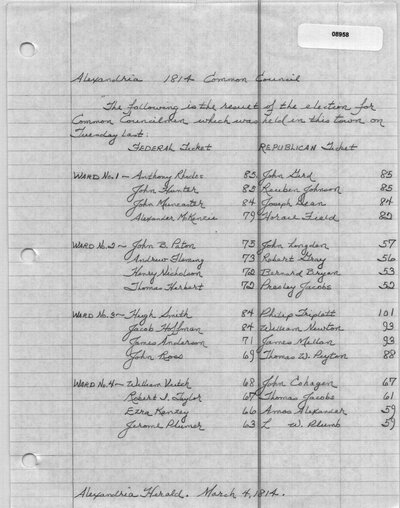 08958
Alexandria 1814 Common Council
"The following is the result of the election for
Common Councilmen which was held in this town on
Tuesday last:
FEDERAL Ticket REPUBLICAN Ticket
WARD No. 1 - Anthony Rhodes 85 John Gird 85
John Hunter 85 Reuben Johnson 85
John Muncaster 84 Joseph Dean 84
Alexander McKenzie 79 Horace Field 82
WARD No. 2 - John B. Paton 73 John Longden 57
Andrew Fleming 73 Robert Gray 56
Henry Nicholson 72 Bernard Bryan 53
Thomas Herbert 72 Presley Jacobs 52
WARD No. 3 - Hugh Smith 84 Philip Triplett 101
Jacob Hoffman 84 William Newton 93
James Anderson 71 James Millan 93
John Ross 69 Thomas W. Peyton 88
WARD No. 4 - William Veitch 68 John Cohagen 67
Robert I. Taylor 67 Thomas Jacobs 61
Ezra Kinzey 66 Amos Alexander 59
Jerome Plumer 63 L W. Plumb 59
Alexandria Herald. March 4, 1814.